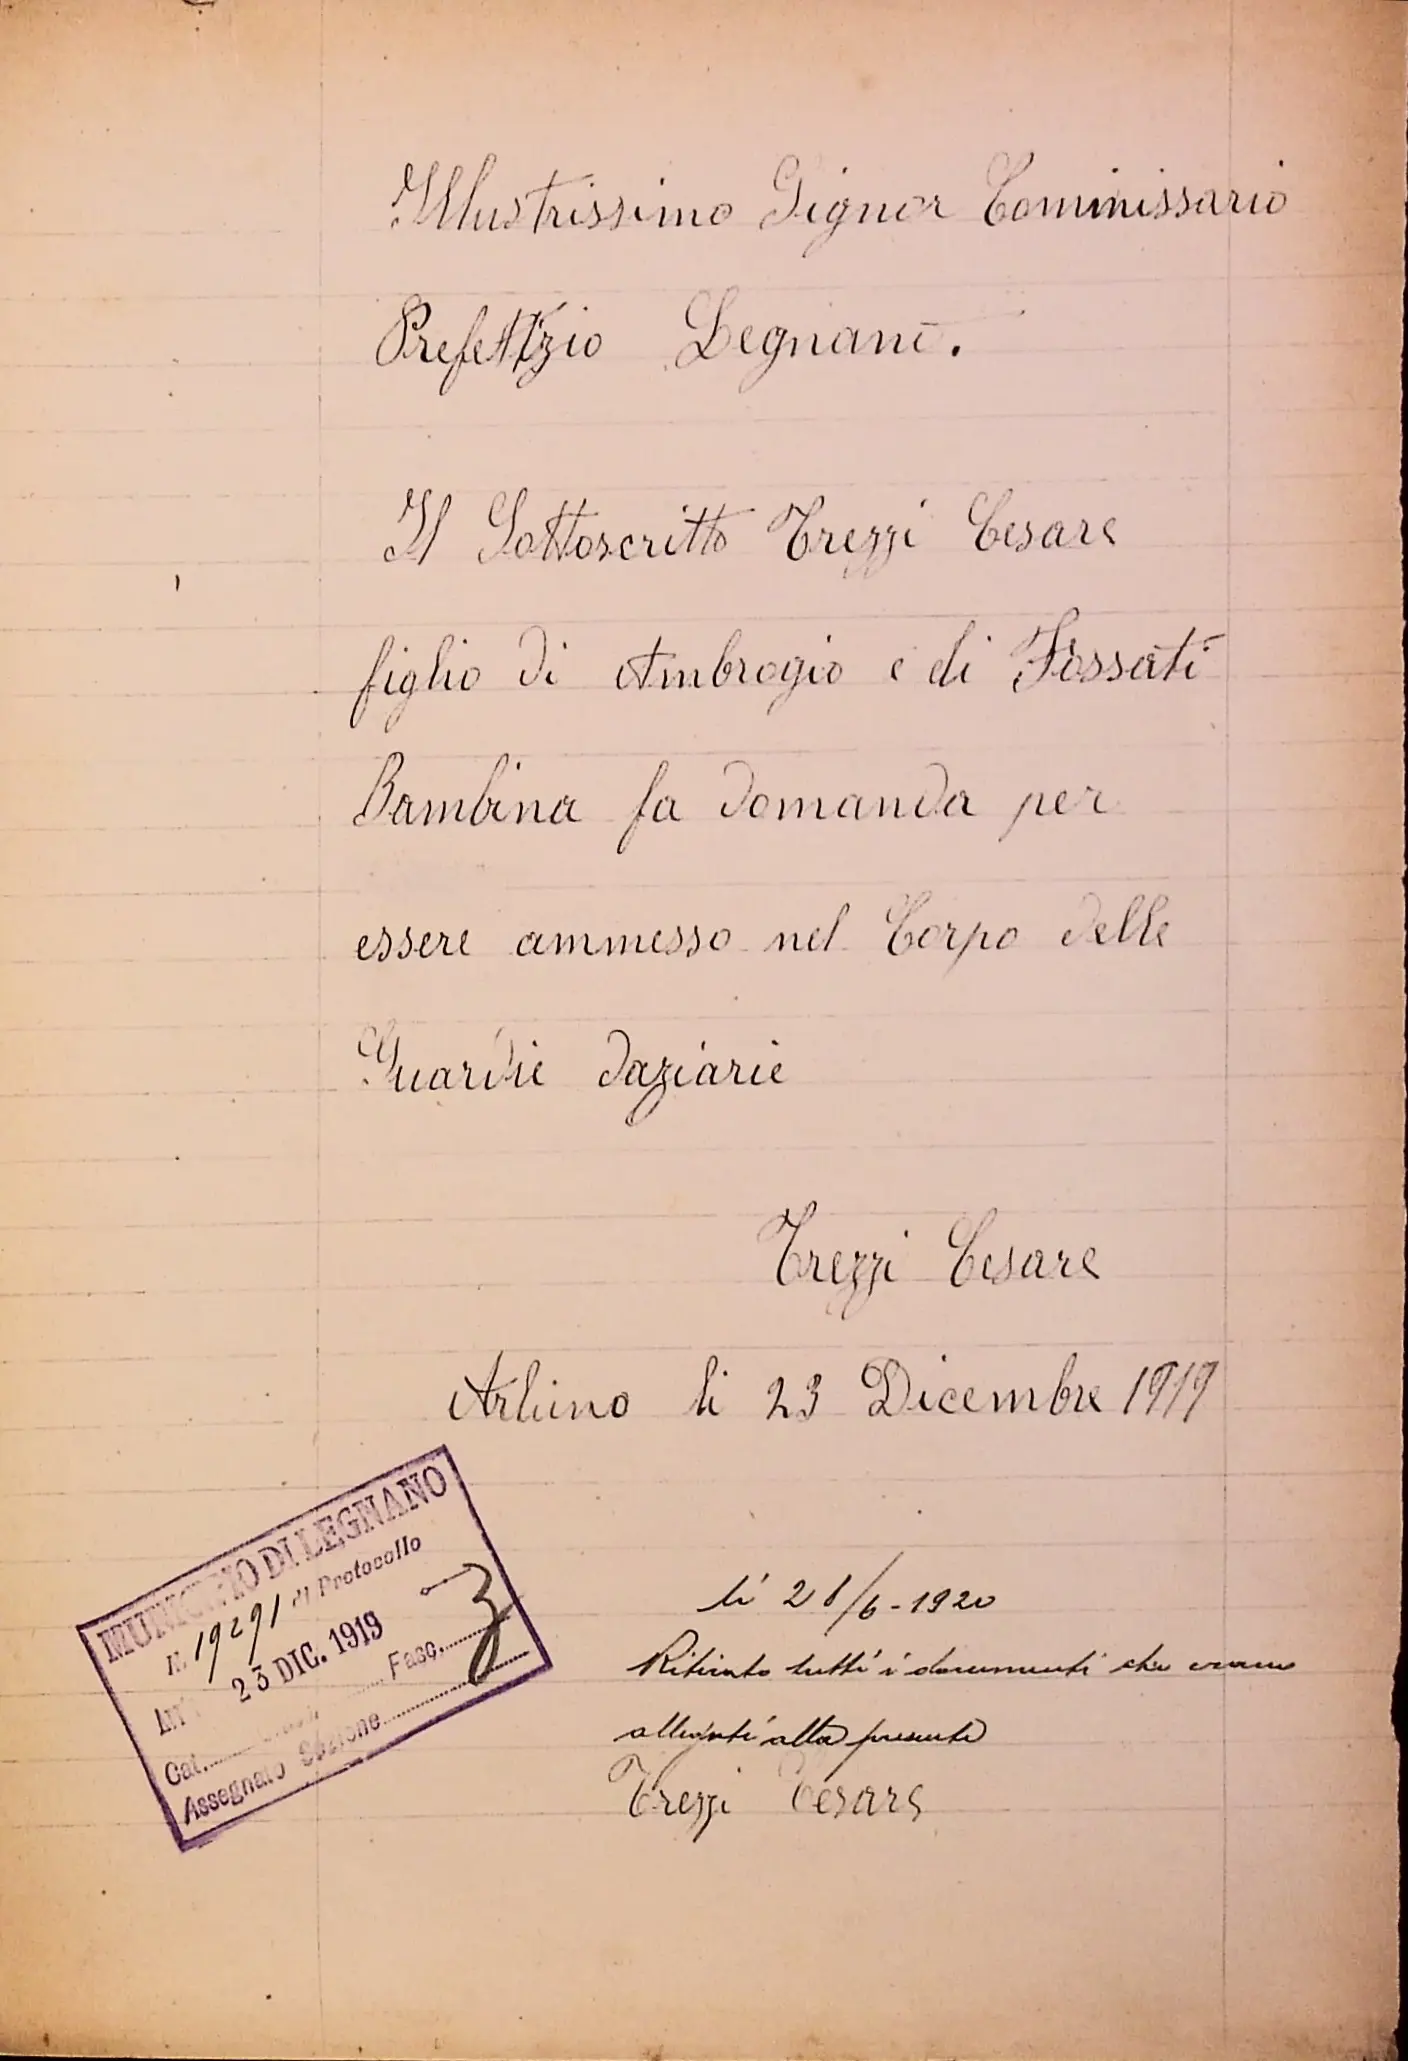 Illustrissimo Signor Commissario
Prefettizio Legnano.
Il Sottoscritto Trezzi Cesare
figlio di Ambrogio e di Fossati
Bambina fa domanda per
essere ammesso nel Corpo delle
Guardie daziarie
Trezzi Cesare
Arluno li 23 Dicembre 1919
MUNICIPIO DI LEGNANO
N. 19291 di Protocollo
23 DIC. 1919
Cat. Fasc.
Assegnato Sezione 3
li 28/6-1920
Ritirato tutti i documenti che erano
allegati alla presente
Trezzi Cesare